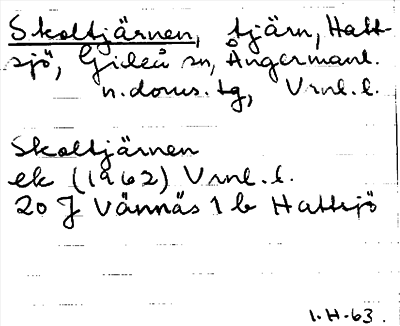 Skoltjärnen, tjärn, Hatt-
sjö, Gideå sn, Ångermanl.
n.doms. tg, Vrnl. l.
Skoltjärnen
ek (1962) Vrnl. l.
20 J Vännäs 1 b Hattsjö
1.H.63.